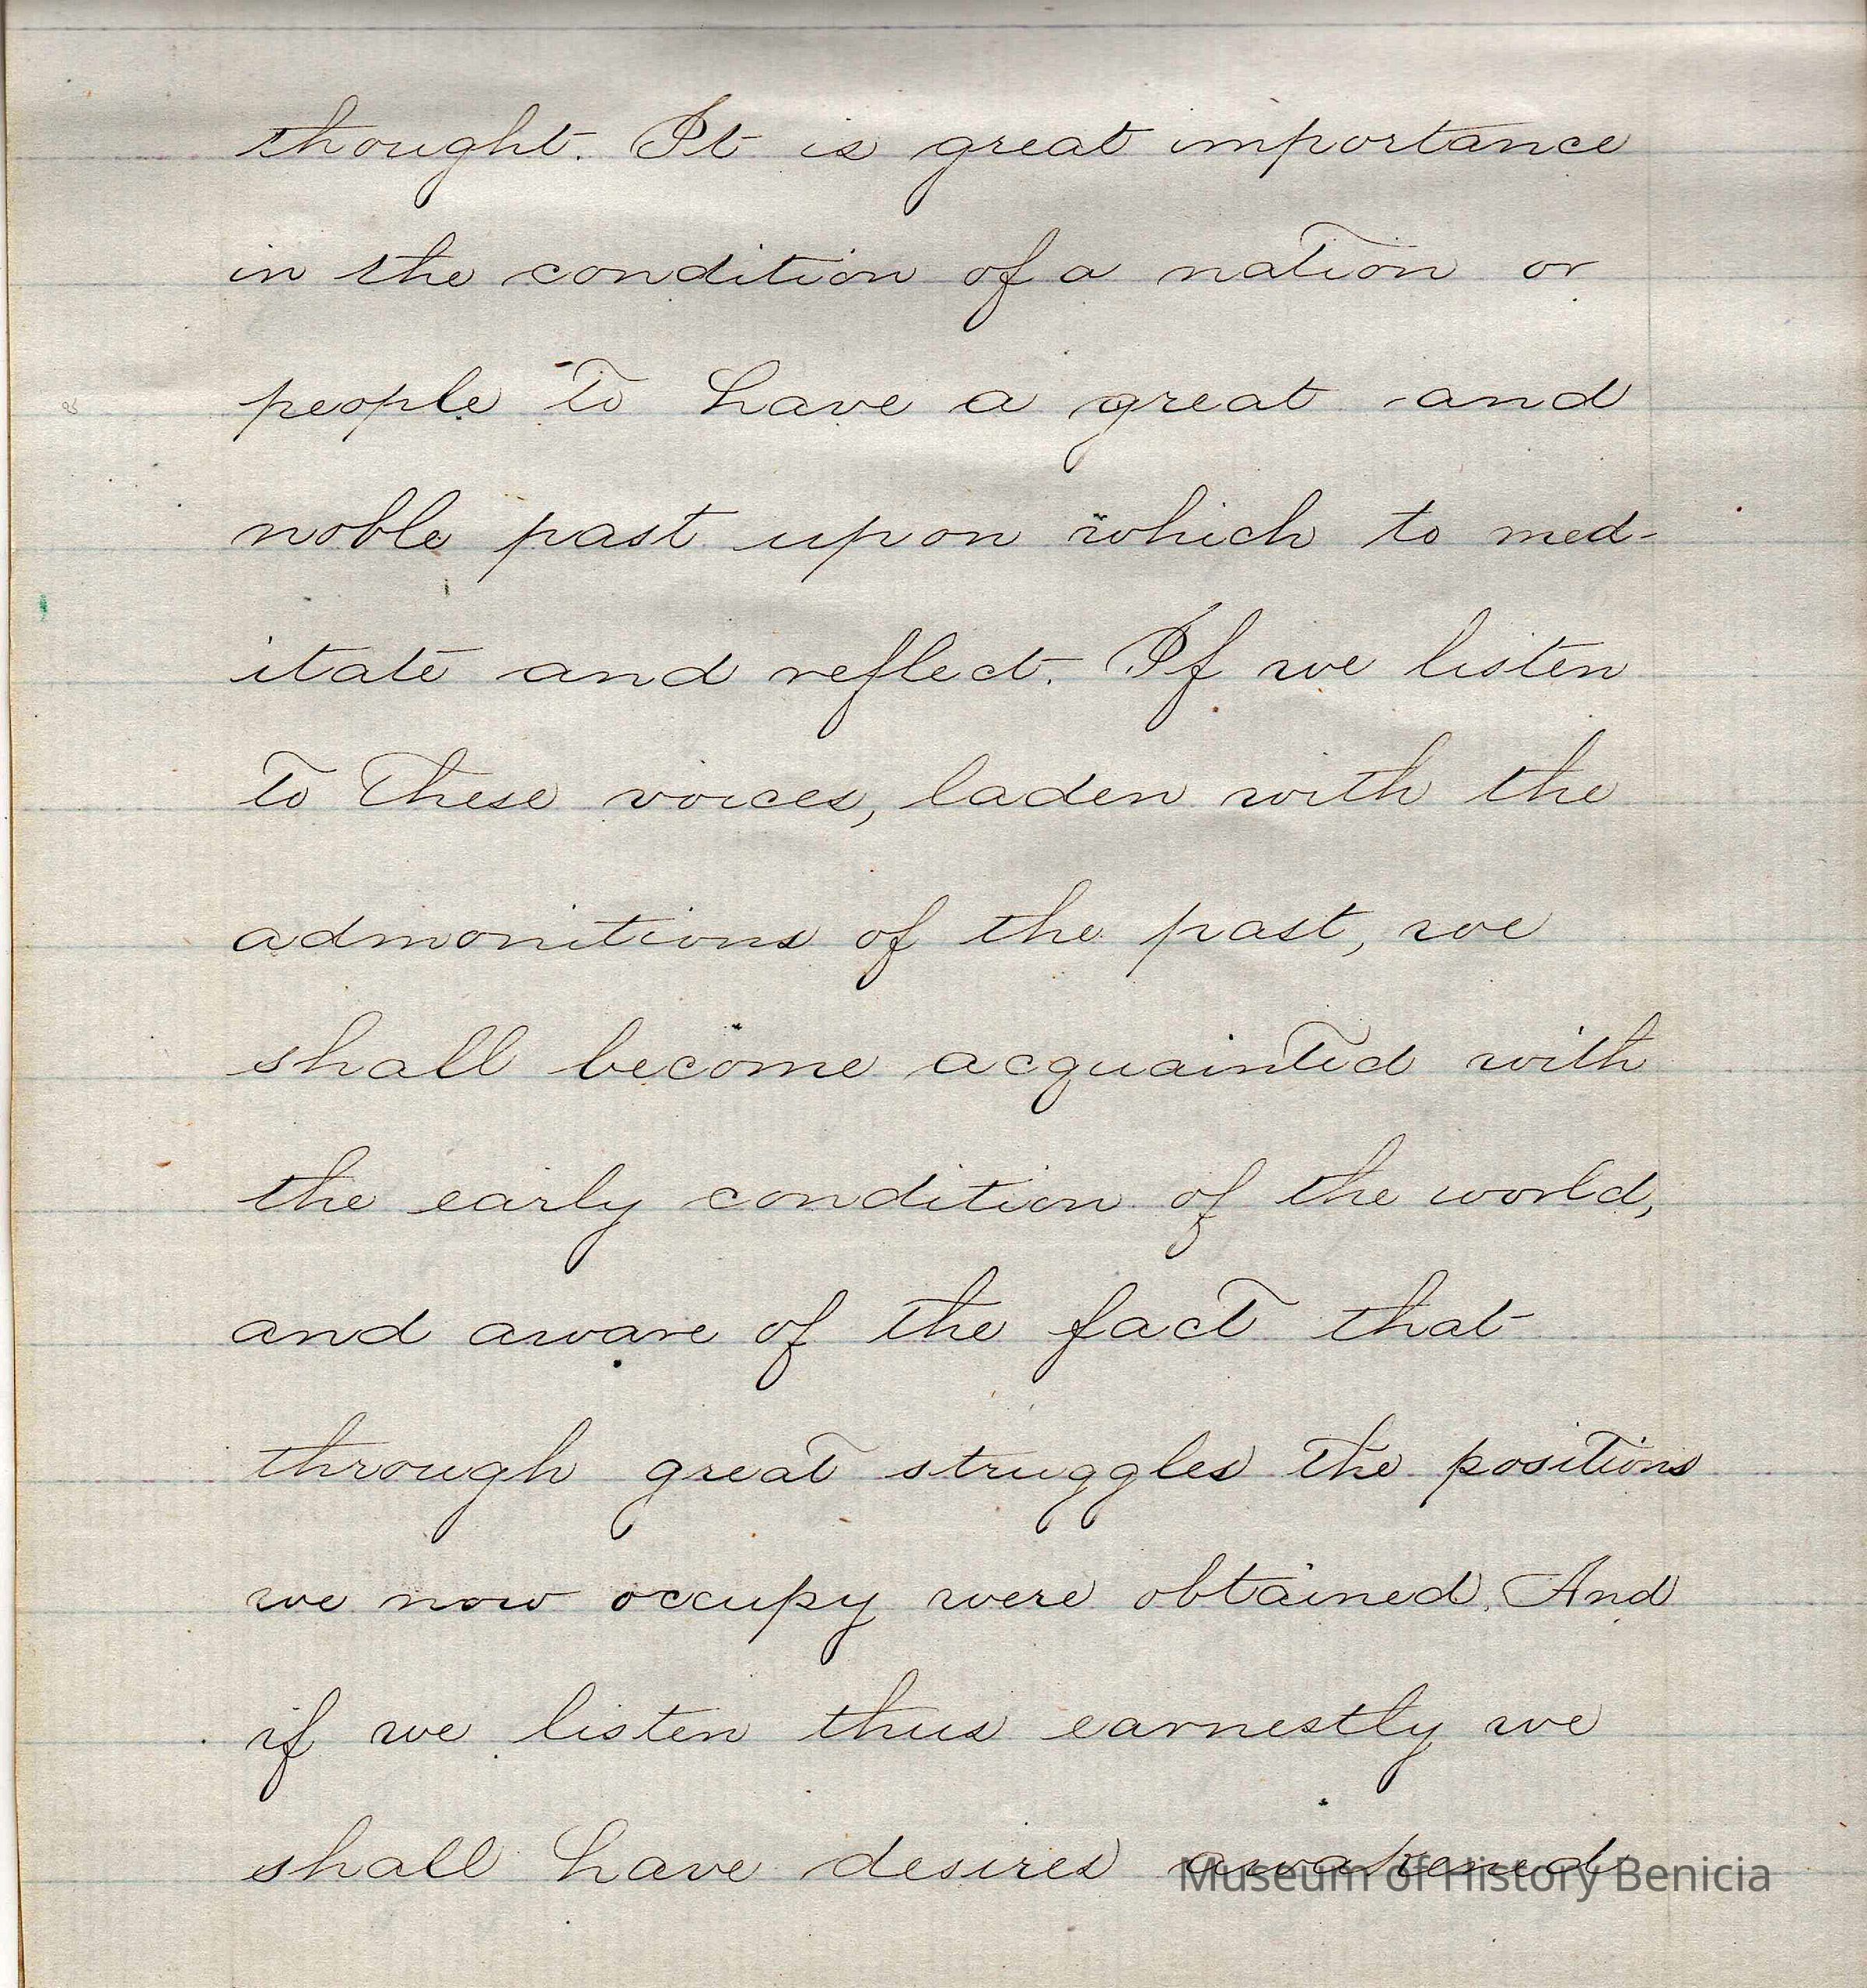 thought. It is great importance
in the condition of a nation or
people to have a great and
noble past upon which to med-
itate and reflect. If we listen
to these voices, laden with the
admonitions of the past, we
shall become acquainted with
the early condition of the world,
and aware of the fact that
through great struggles the positions
we now occupy were obtained. And
if we listen thus earnestly we
shall have desires awakened
Museum of History Benicia